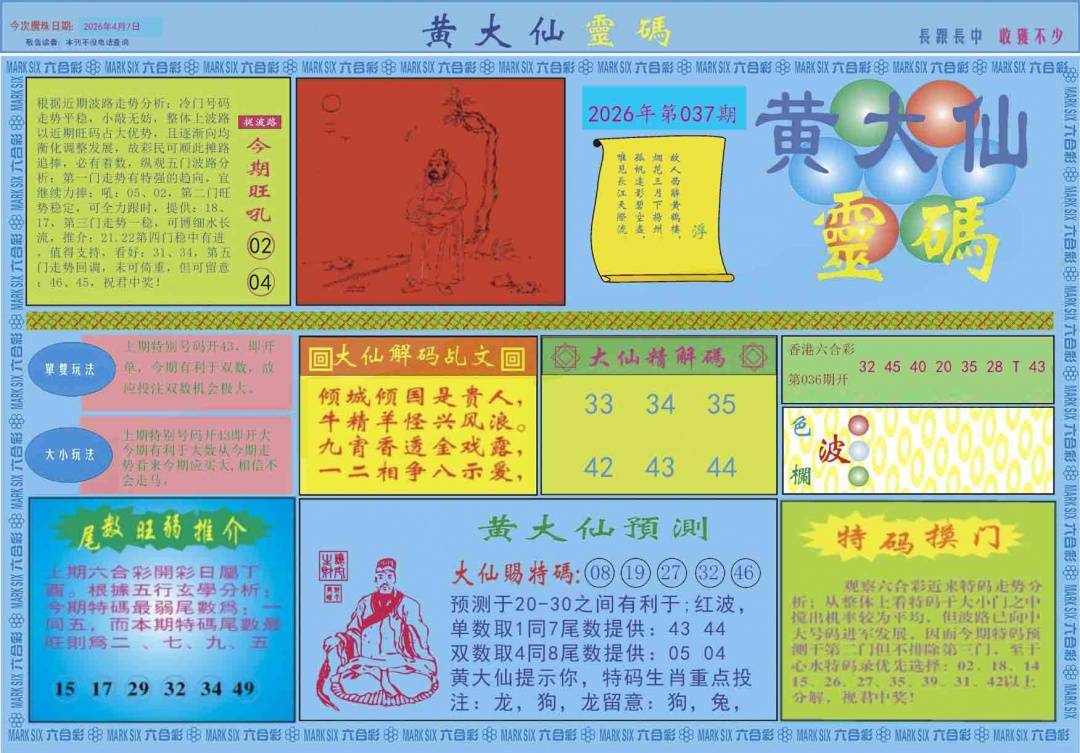 今次攪珠日期: 2026年4月7日
敬告读者: 本刊不设电话查询
黄大仙靈碼
長跟長中 收獲不少
MARK SIX 六合彩
根据近期波路走势分析: 冷门号码
走势平稳, 小敲无妨, 整体上波路
以近期旺码占大优势, 且逐渐向均
衡化调整发展, 故彩民可顺此摊路
追捧, 必有着数, 纵观五门波路分
析: 第一门走势有特强的趋向, 宜
继续力捧: 吼: 05、02, 第二门旺
势稳定, 可全力跟时, 提供: 18、
17、第三门走势一稳, 可博细水长
流, 推介: 21.22第四门稳中有进
, 值得支持, 看好: 31、34, 第五
门走势回调, 未可倚重, 但可留意
: 46、45, 祝君中奖!
捉波路
今期旺吼
02
04
2026年第037期
故人西辭黃鶴樓,
烟花三月下揚州,
孤帆遠影碧空盡,
唯見長江天際流,
浮
黄大仙
靈碼
單雙玩法
上期特别号码开43, 即开
单, 今期有利于双数, 故
应投注双数机会极大。
大小玩法
上期特别号码开43即开大
今期有利于大数从今期走
势看来今期应买大, 相信不
会走马。
大仙解码乩文
倾城倾国是贵人,
牛精羊怪兴风浪。
九宵香透金戏露,
一二相争八示爱,
大仙精解碼
33 34 35
42 43 44
香港六合彩
第036期开
32 45 40 20 35 28 T 43
色波欄
尾数旺弱推介
上期六合彩開彩日屬丁
酉。根據五行玄學分析;
今期特碼最弱尾數爲; 一
同五, 而本期特碼尾數最
旺則爲二、七、九、五
15 17 29 32 34 49
黄大仙預測
大仙賜特碼: 08 19 27 32 46
预测于20-30之间有利于; 红波,
单数取1同7尾数提供: 43 44
双数取4同8尾数提供: 05 04
黄大仙提示你, 特码生肖重点投
注: 龙, 狗, 龙留意: 狗, 兔,
特码摸门
观察六合彩近来特码走势分
析; 从整体上看特码于大小门之中
搅出机率较为平均, 但波路已向中
大号码进军发展, 因而今期特码预
测于第二门但不排除第三门, 至于
心水特码录优先选择: 02、18、14
15、26、27、35、39、31、42以上
分解, 祝君中奖!